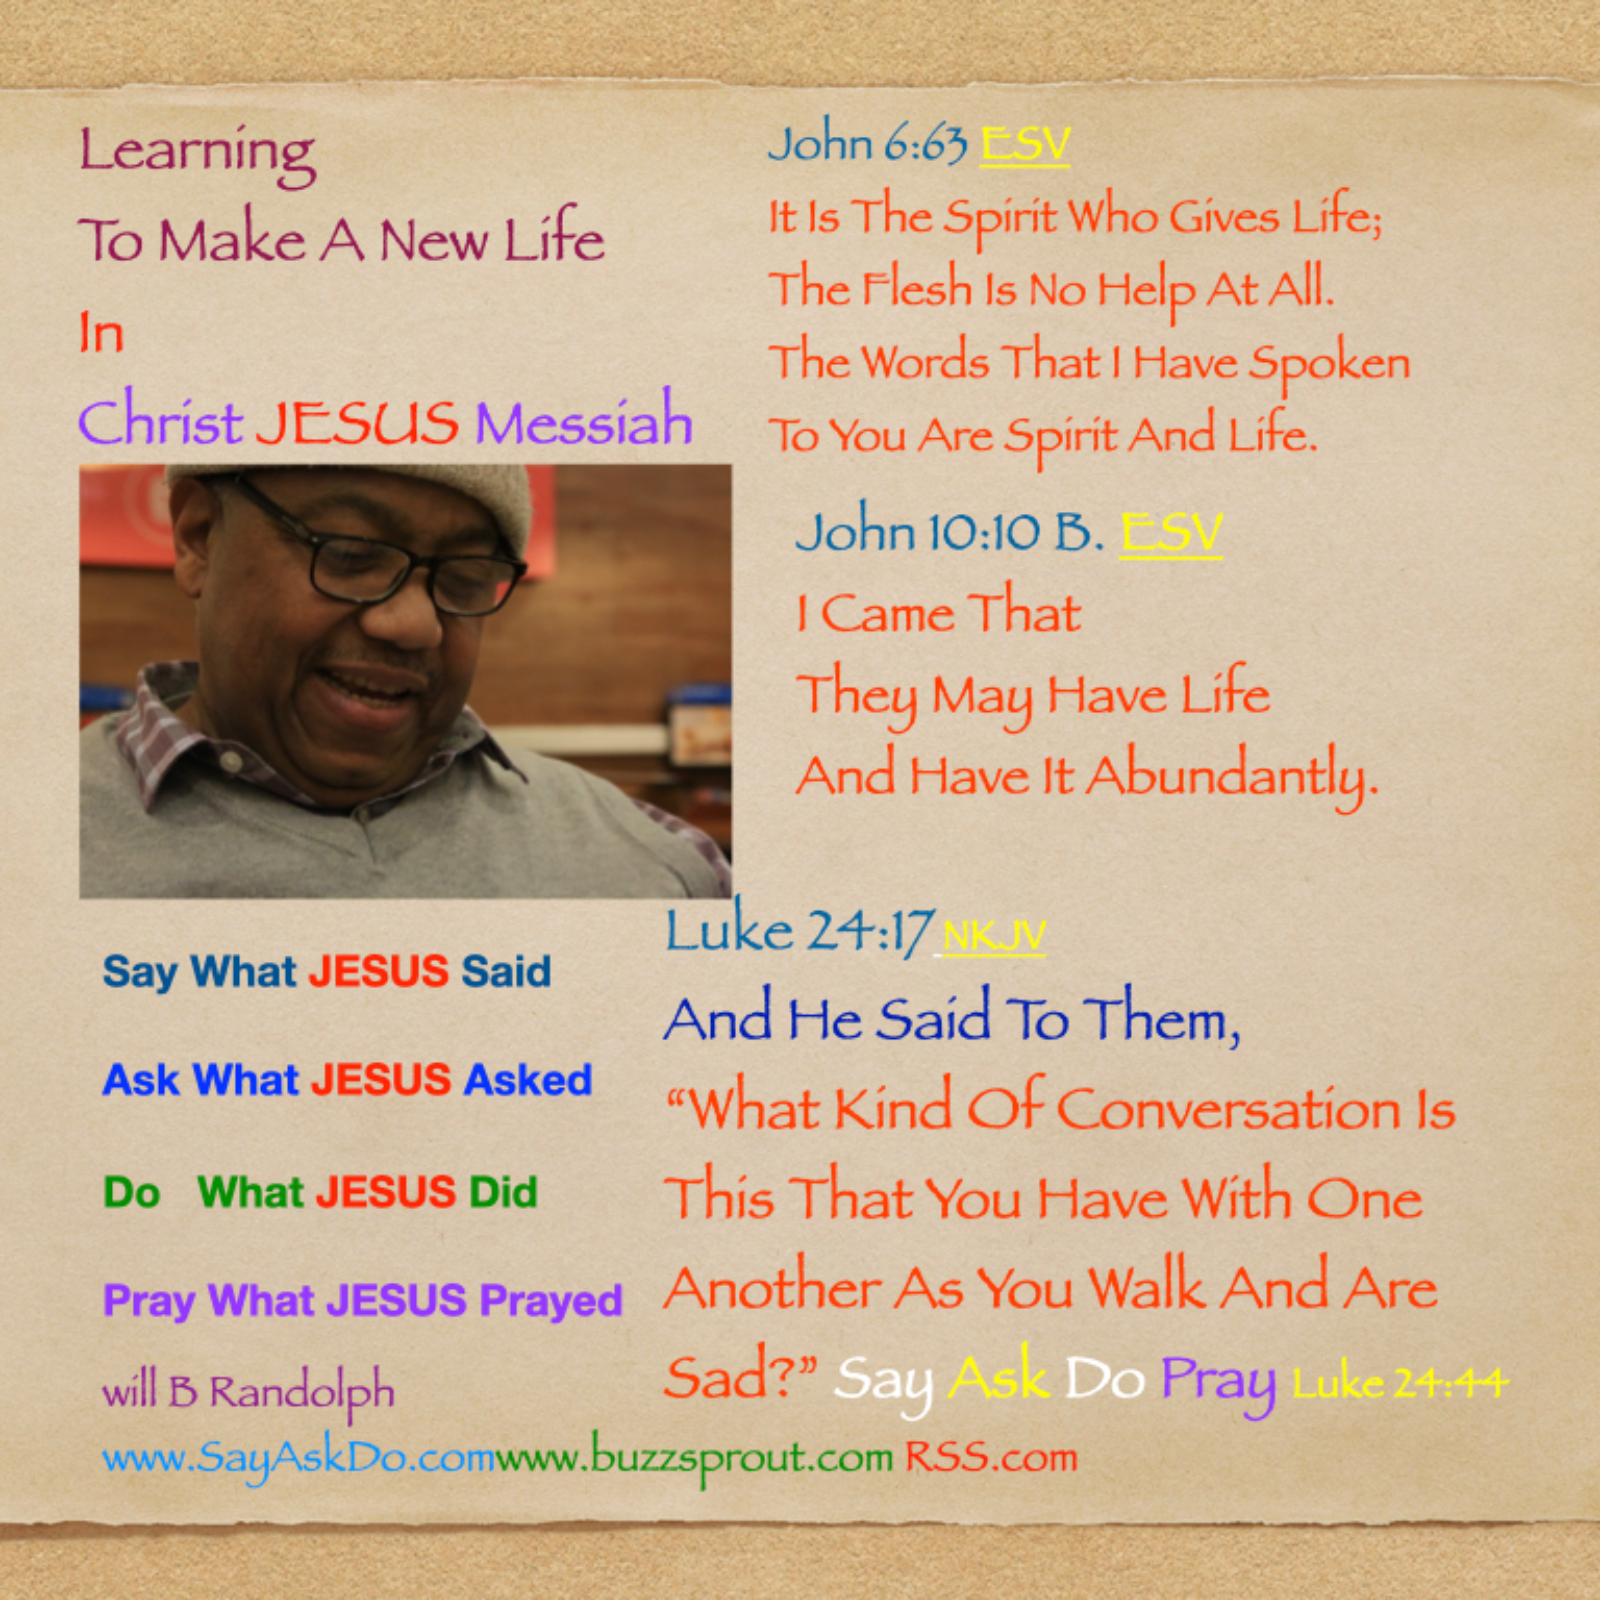 Learning
To Make A New Life
In
Christ JESUS Messiah
John 6:63 ESV
It Is The Spirit Who Gives Life;
The Flesh Is No Help At All.
The Words That I Have Spoken
To You Are Spirit And Life.
John 10:10 B. ESV
I Came That
They May Have Life
And Have It Abundantly.
Say What JESUS Said
Ask What JESUS Asked
Do What JESUS Did
Pray What JESUS Prayed
will B Randolph
Luke 24:17 NKJV
And He Said To Them,
“What Kind Of Conversation Is
This That You Have With One
Another As You Walk And Are
Sad?” Say Ask Do Pray Luke 24:44
www.SayAskDo.comwww.buzzsprout.com RSS.com